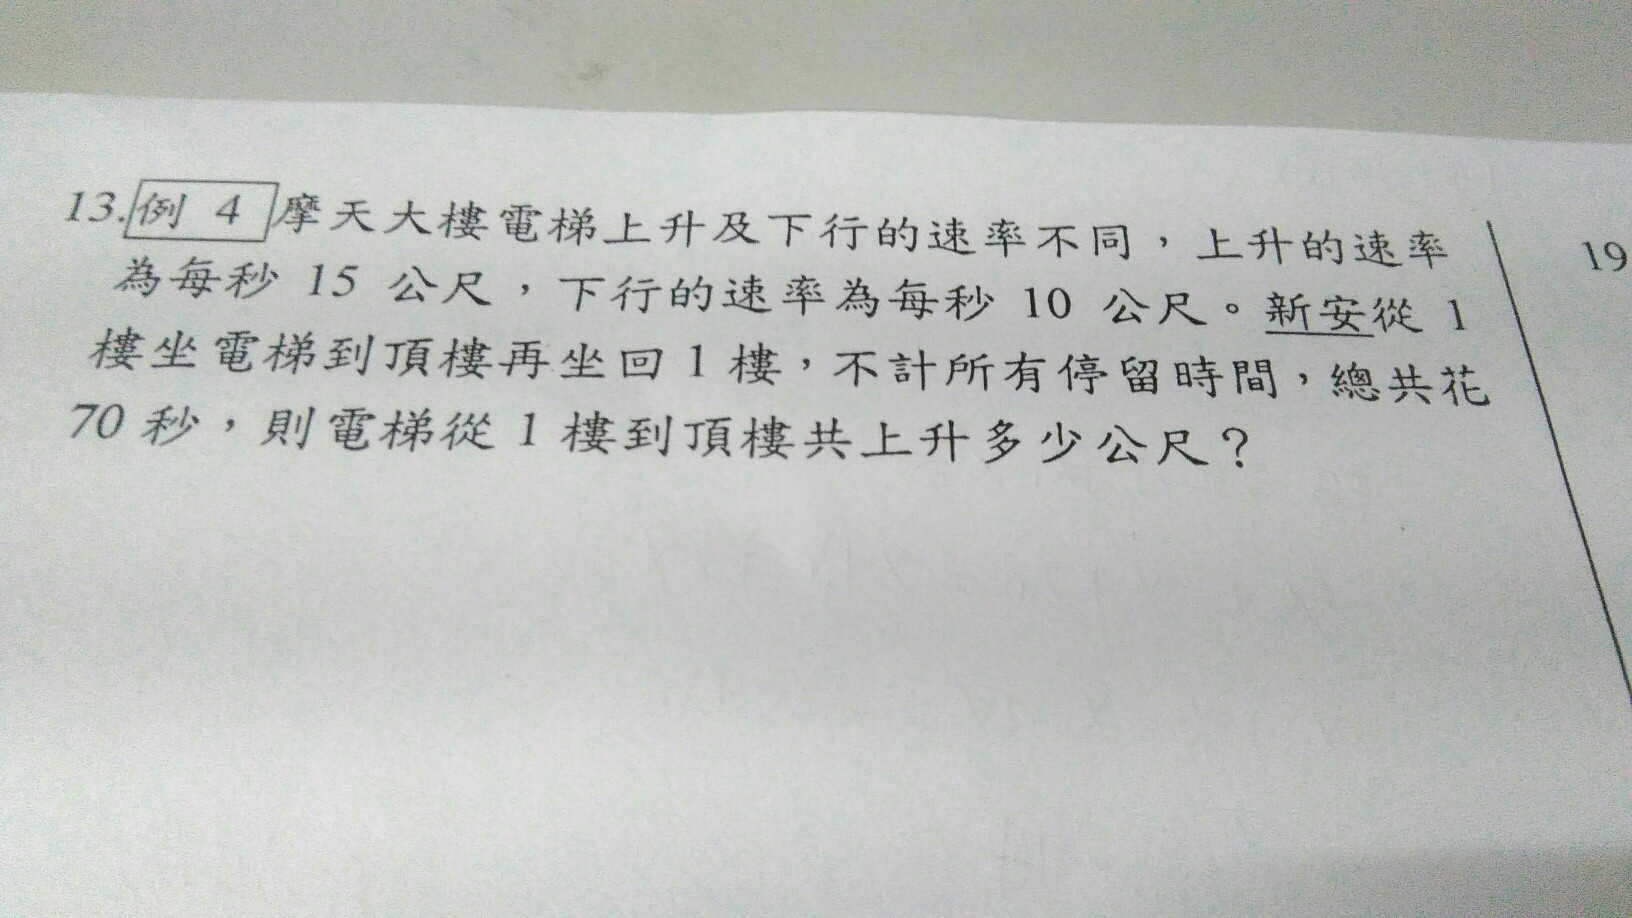 13.例 4 摩天大樓電梯上升及下行的速率不同，上升的速率
為每秒 15 公尺，下行的速率為每秒 10 公尺。新安從 1
樓坐電梯到頂樓再坐回 1 樓，不計所有停留時間，總共花
70 秒，則電梯從 1 樓到頂樓共上升多少公尺？
19